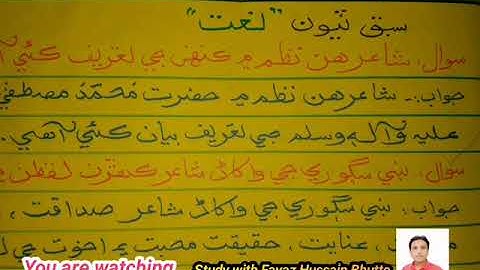 سبق ٽيون "نعت"
سوال: شاعر هن نظم ۾ ڪنهن جي تعريف ڪئي آ
جواب:- شاعر هن نظم ۾ حضرت محمّد مصطفيٰ
عليه وآله وسلم جي تعريف بيان ڪئي آهي.
سوال: نبي سڳوري جي واکاڻ شاعر ڪهڙن لفظن ۾
جواب: نبي سڳوري جي واکاڻ شاعر صداقت،
عنايت، حقيقت محبت ۽ اخوت جي
You are watching
Study with Fayaz Hussain Bhutto